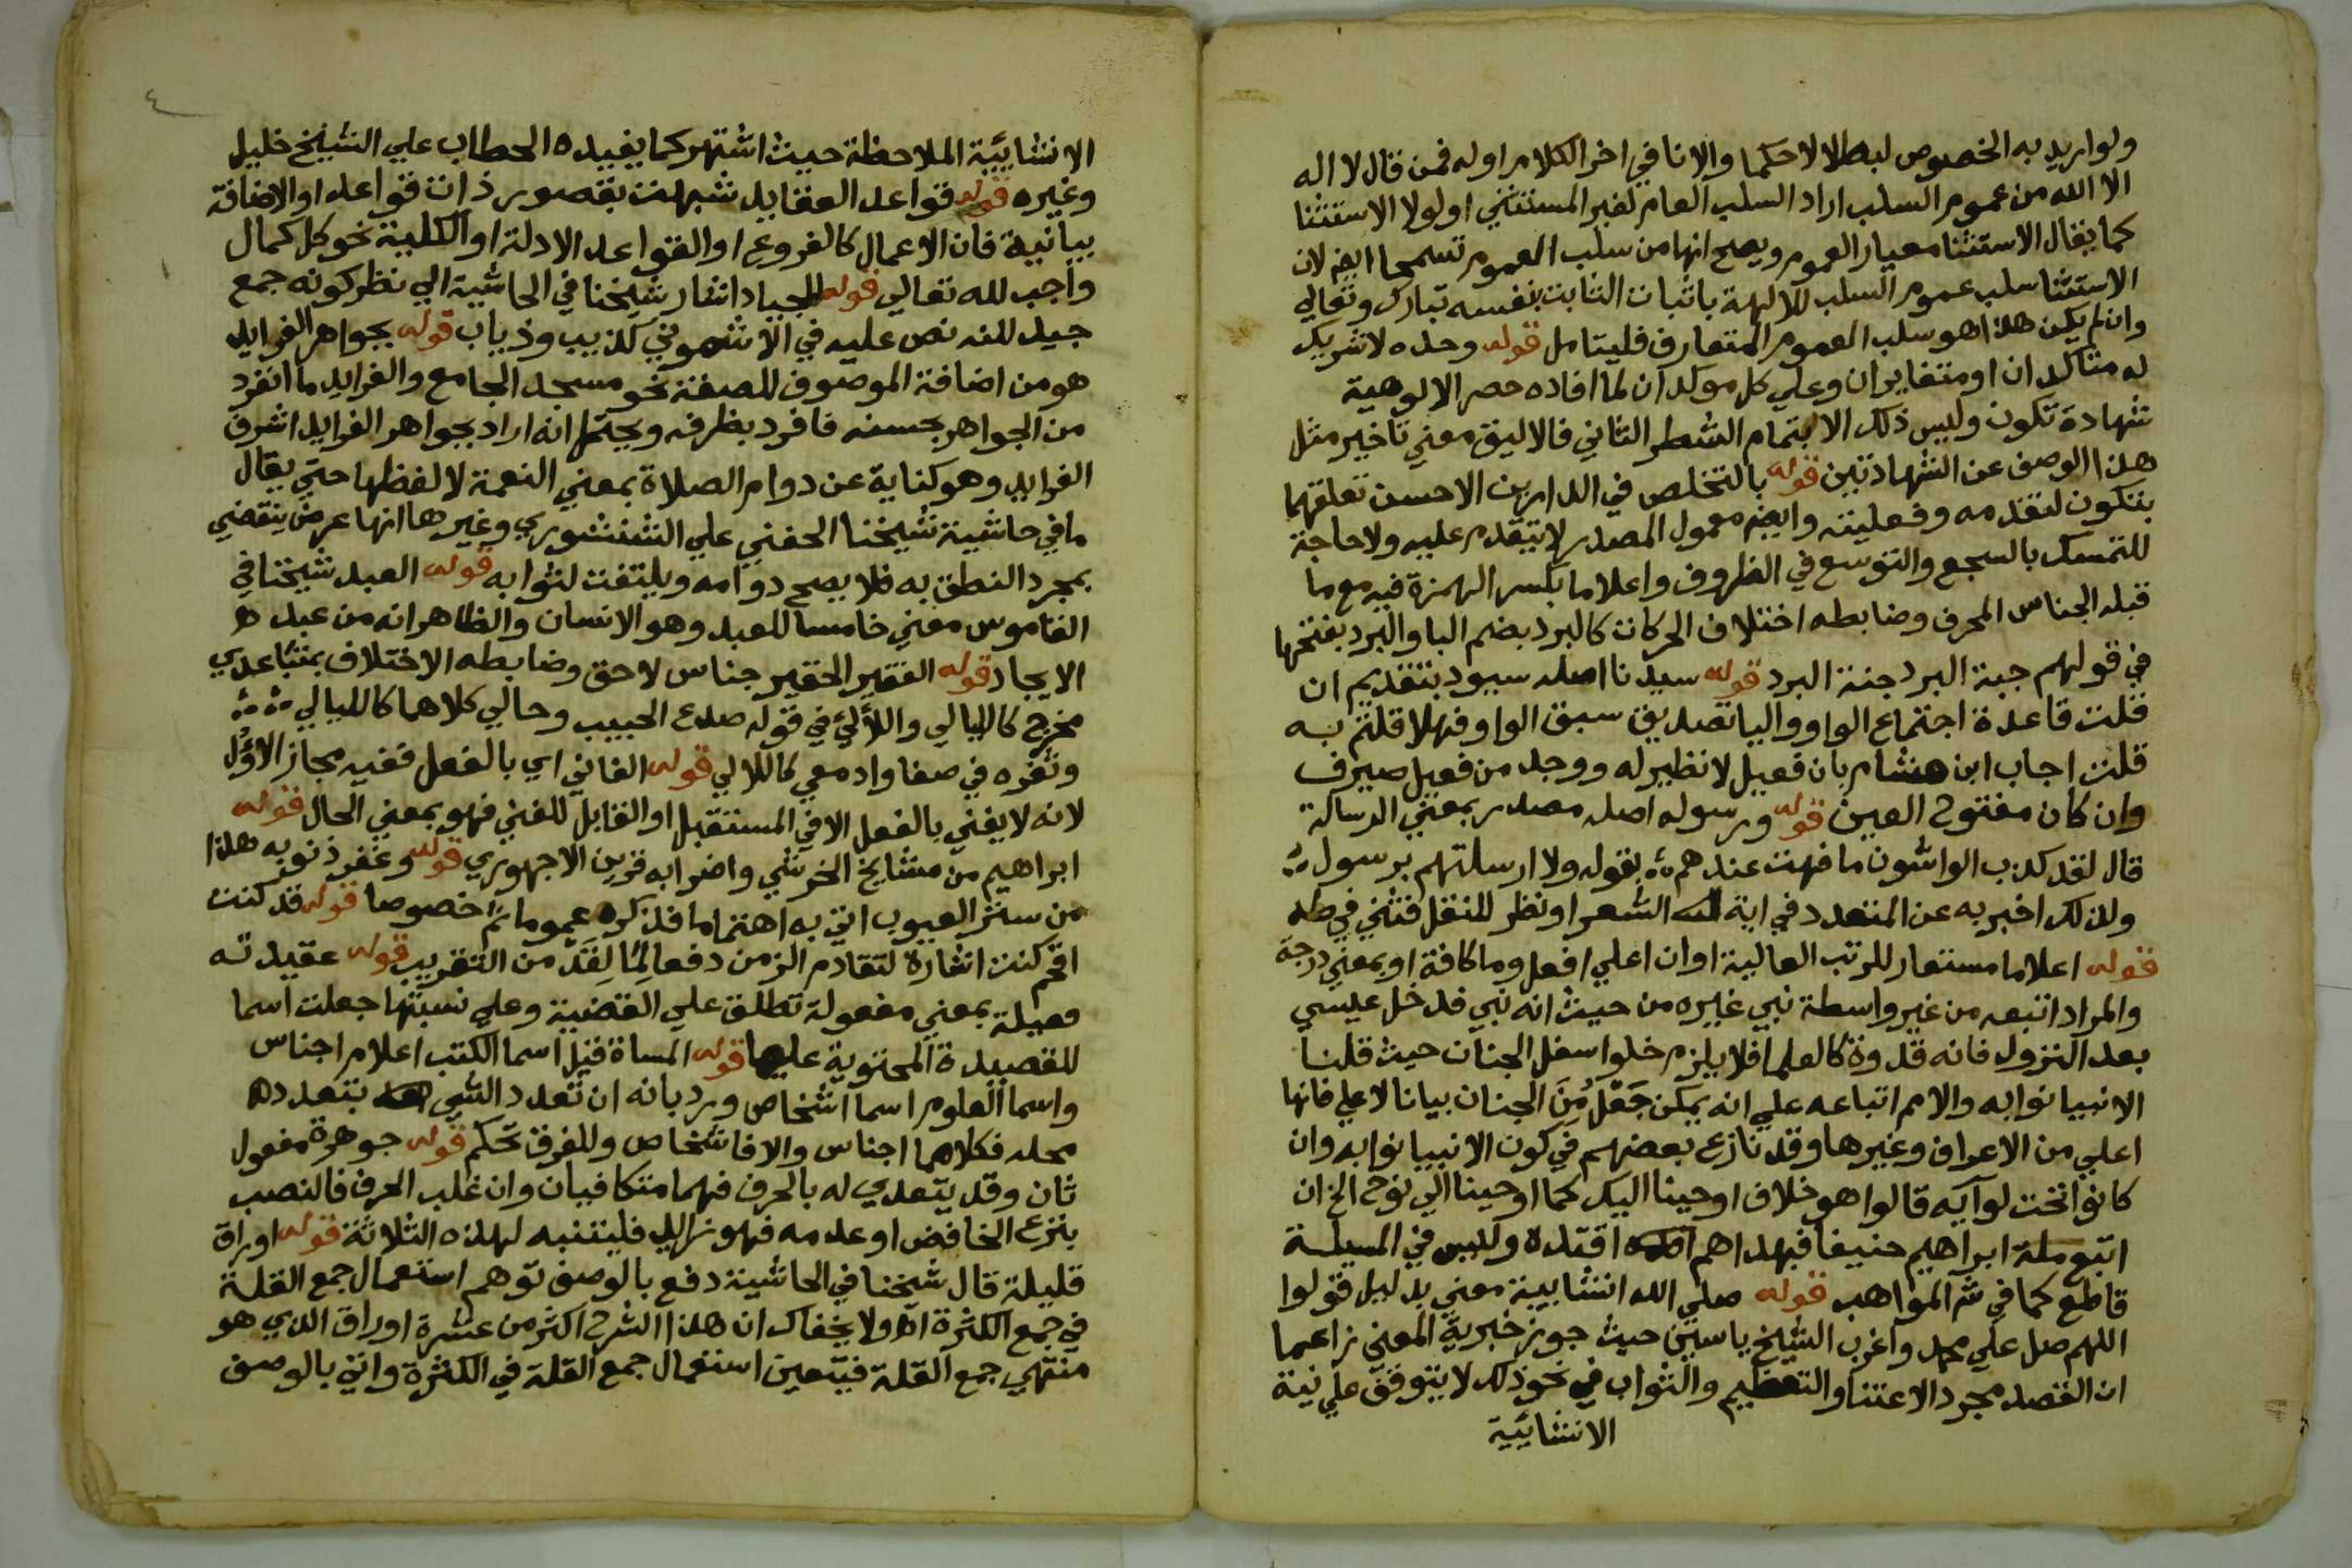 ولو اريد به الخصوص لبطلا لاحكما والا نافي اخر الكلام اوله فمن قال لا اله
الا الله من عموم السلب اراد السلب العام لغير المستثني او لولا الاستثنا
كما يقال الاستثنا معيار العموم ويصح انها من سلب العموم تسمحا ايضا لان
الاستثنا سلب عموم السلب للالهة باثبات الثابت بنفسه تبارك وتعالي
وان لم يكن هذا هو سلب العموم المتعارف فليتامل قوله وحده لا شريك
له متاكدان او متغايران وعلي كل موكدان لما افاده حصر الالوهية
شهادة تكون وليس ذلك الا بتمام الشطر الثاني فالاليق معني تاخير مثل
هذا الوصف عن الشهادتين قوله بالتخلص في الدارين الاحسن تعلقهما
بتكون لتقدمه وفعليته وايضا معمول المصدر لا يتقدم عليه ولا حاجة
للتمسك بالسجع والتوسع في الظروف واعلاما بكسر الهمزة فيه مع ما
قبله الجناس المحرف وضابطه اختلاف الحركات كالبرد بضم البا والبرد بفتحها
في قولهم جبة البرد جنة البرد قوله سيدنا اصله سيود بتقديم ان
قلت قاعدة اجتماع الواو واليا تصديق سبق الواو فهلا قلتم به
قلت اجاب ابن هشام بان فعيل لا نظير له ووجد من فيعل صيرف
وان كان مفتوح العين قوله ورسوله اصله مصدر بمعني الرسالة
قال لقد كذب الواشون ما فهت عندهم بقوله ولا ارسلتهم برسول
ولذلك اخبر به عن المتعدد في اية الشعرا ونظر للنقل فثني في طه
قوله اعلاما مستعار للرتب العالية او ان اعلي افعل وما كافة او بمعني درجة
والمراد اتبعه من غير واسطة نبي غيره من حيث انه نبي فدخل عيسي
بعد النزول فانه قدوة كالعلما فلا يلزم خلو اسفل الجنان حيث قلنا
الانبيا نوابه والامم اتباعه علي انه يمكن جَعْل مِنَ الجنان بيانا لاعلي فانها
اعلي من الاعراف وغيرها وقد نازع بعضهم في كون الانبيا نوابه وان
كانوا تحت لوآيه قالوا هو خلاف اوحينا اليك كما اوحينا الي نوح الخ ان
اتبع ملة ابراهيم حنيفا فبهداهم اقتده وليس في المسيلة
قاطع كما في شر المواهب قوله صلي الله انشايية معني بدليل قولوا
اللهم صل علي محمد واغرب الشيخ ياسين حيث جوز خبرية المعني زاعما
ان القصد مجرد الاعتنا والتعظيم والثواب في نحو ذلك لا يتوقف علي نية
الانشاييّة
٤
الانشاييّة الملاحظة حيث اشتهر كما يفيده الحطاب علي الشيخ خليل
وغيره قوله قواعد العقايد شبهت بقصور ذات قواعد او الاضافة
بيانية فان الاعمال كالفروع او القواعد الادلة او الكلية نحو كل كمال
واجب لله تعالي قوله الجياد اشار شيخنا في الحاشية الي نظر كونه جمع
جيد لكنه نص عليه في الاشموني كذيب وذياب قوله بجواهر الفرايد
هو من اضافة الموصوف للصفة نحو مسجد الجامع والفرايد ما انفرد
من الجواهر بحسنه فافرد بظرفه ويحتمل انه اراد بجواهر الفرايد اشرف
الفرايد وهو كناية عن دوام الصلاة بمعني النعمة لا لفظها حتي يقال
ما في حاشية شيخنا الحفني علي الشنشوري وغيرها انها عرض ينقضي
بمجرد النطق به فلا يصح دوامه ويلتفت لثوابه قوله العبد شيخنا في
القاموس معني خامسا للعبد وهو الانسان والظاهر انه من عبد
الايجاد قوله الفقير الحقير جناس لاحق وضابطه الاختلاف بمتباعدي
مخرج كالليالي واللآلئ في قوله صدغ الحبيب وحالي كلاهما كالليالي
وثغره في صفا وادمعي كاللالي قوله الفاني اي بالفعل ففيه مجاز الاوْل
لانه لا يفني بالفعل الا في المستقبل او القابل للفني فهو بمعني الحال قوله
ابراهيم من مشايخ الخرشي واضرابه قرين الاجهوري قوله وغفر ذنوبه هذا
من ستر العيوب اتي به اهتماما فذكره عموما ثم خصوصا قوله قد كنت
اقحم كنت اشارة لتقادم الزمن دفعا لما لِقَدْ من التقريب قوله عقيدته
فعيلة بمعني مفعولة تطلق علي القضية وعلي نسبتها جعلت اسما
للقصيدة المحتوية عليها قوله المسماة قيل اسما الكتب اعلام اجناس
واسما العلوم اسما اشخاص ورد بانه ان تعدد الشي بتعدد
محله فكلاهما اجناس والا فاشخاص وللفرق تحكم قوله جوهرة مفعول
ثان وقد يتعدي له بالحرف فهما متكافيان وان غلب الحرف فالنصب
بنزع الخافض او عدمه فهو زايد فليتنبه لهذه الثلاثة قوله اوراق
قليلة قال شيخنا في الحاشية دفع بالوصف توهم استعمال جمع القلة
في جمع الكثرة اه ولا يخفاك ان هذا الشرح اكثر من عشرة اوراق الذي هو
منتهي جمع القلة فيتعين استعمال جمع القلة في الكثرة واتي بالوصف